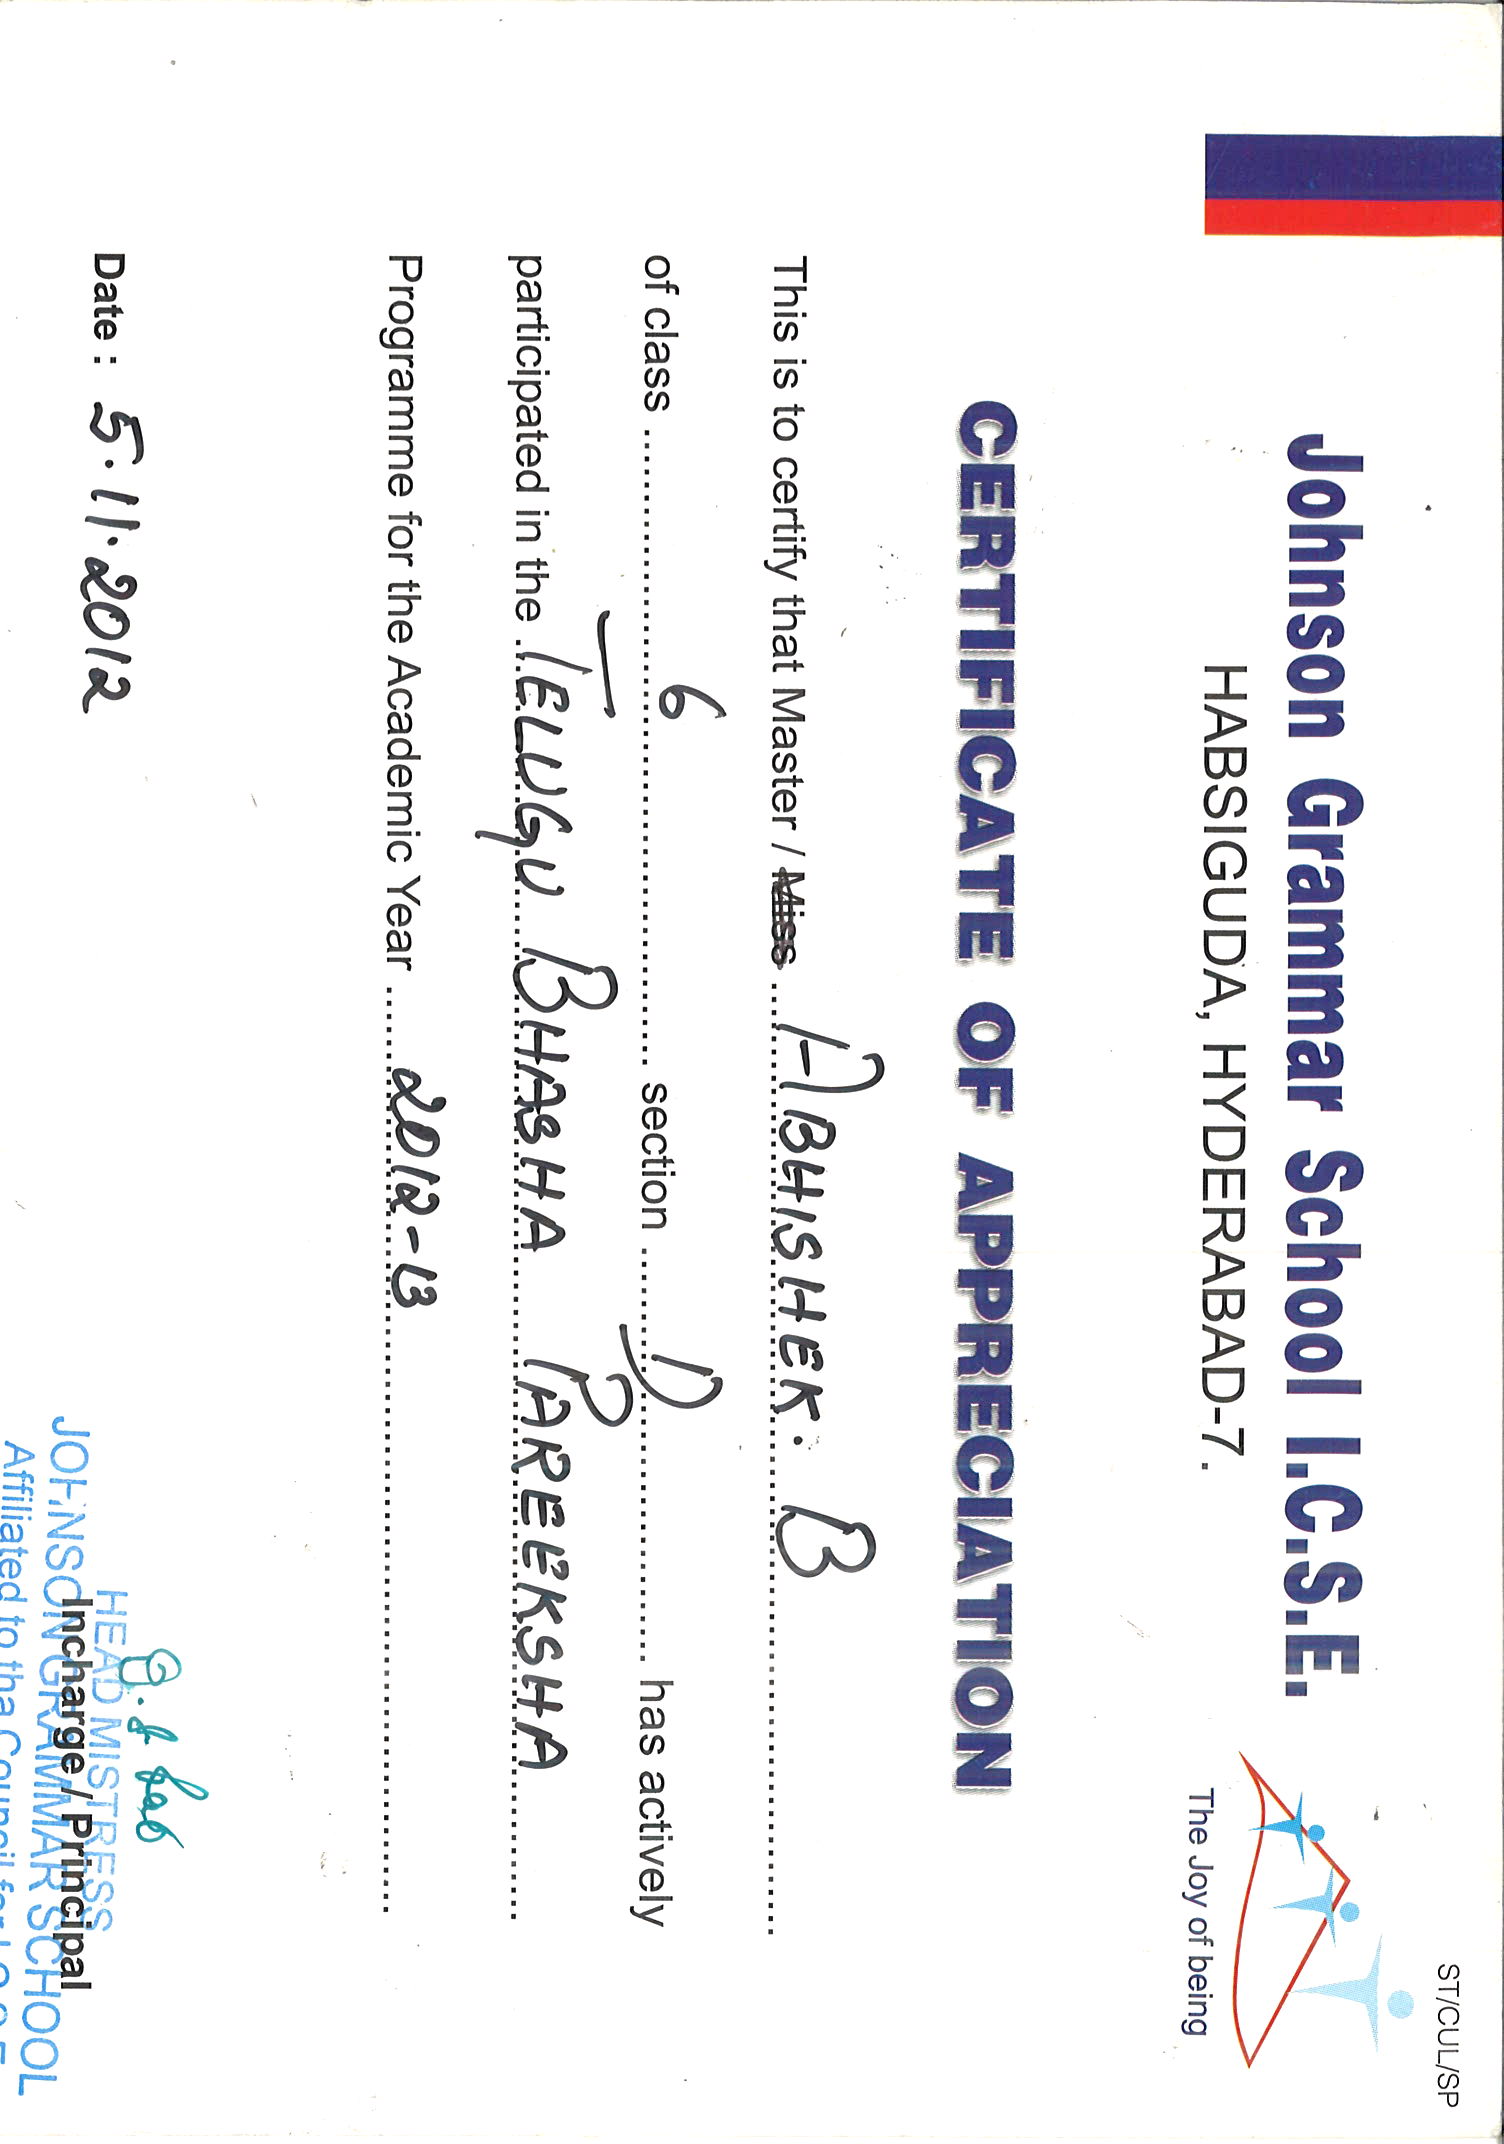 ST/CUL/SP
Johnson Grammar School I.C.S.E.
HABSIGUDA, HYDERABAD-7.
The Joy of being
CERTIFICATE OF APPRECIATION
This is to certify that Master / Miss ABHISHEK. B
of class 6 section D has actively
participated in the TELUGU BHASHA PAREEKSHA
Programme for the Academic Year 2012-13
Date : 5.11.2012
HEAD MISTRESS
Incharge / Principal
JOHNSON GRAMMAR SCHOOL
Affiliated to tha Council for I.C.S.E